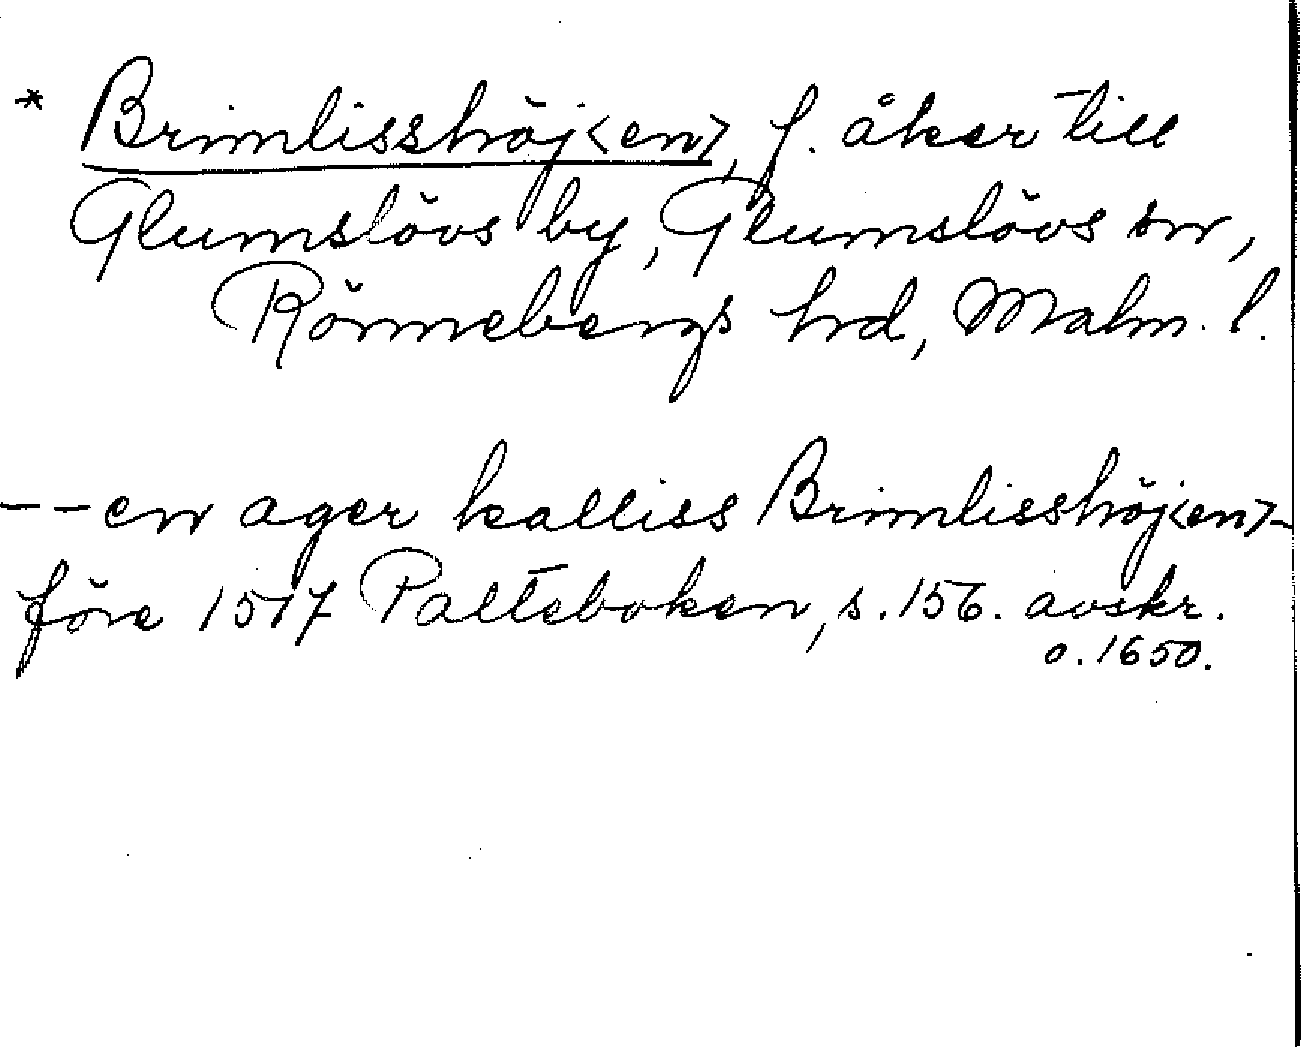 * Brimlisshöj<en>, f. åker till
Glumslövs by, Glumslövs sn,
Rönnebergs hrd, Malm. l.
-- en ager kalliss Brimlisshöj<en> -
före 1517 Palteboken, s. 156. avskr.
o. 1650.